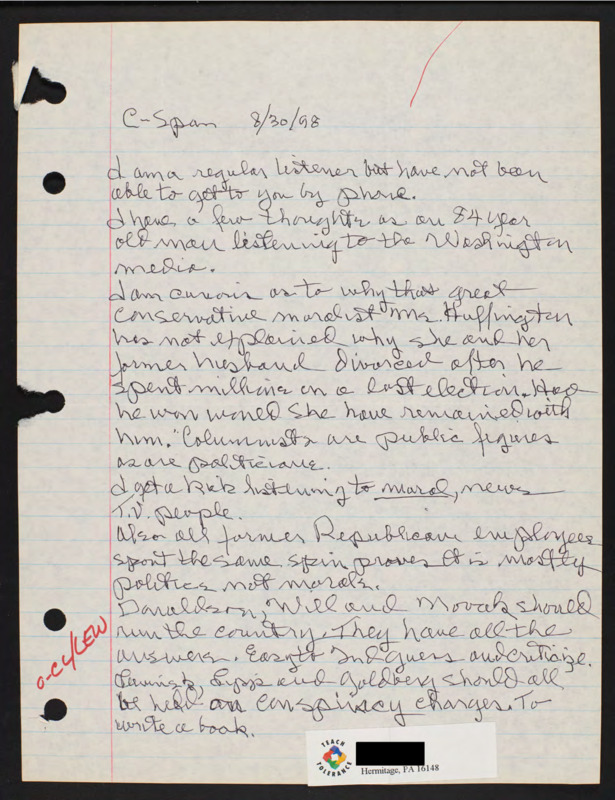 C-Span 8/30/98
I am a regular listener but have not been
able to get to you by phone.
I have a few thoughts as an 84 year
old man listening to the Washington
media.
I am curious as to why that great
conservative moralist Ms. Huffington
has not explained why she and her
former husband divorced after he
spent millions on a lost election. Had
he won would she have remained with
him." Columnists are public figures
as are politicians.
I get a kick listening to moral, news
T.V. people.
Also all former Republican employees
spout the same spin proves it is mostly
politics not morals.
Donaldson, Will and Novak should
run the country. They have all the
answers. Easy to 2nd guess and criticize.
and Goldberg should all
be held on conspiracy charges. To
write a book.
O-C4/LEW
TEACH
TOLERANCE
Hermitage, PA 16148